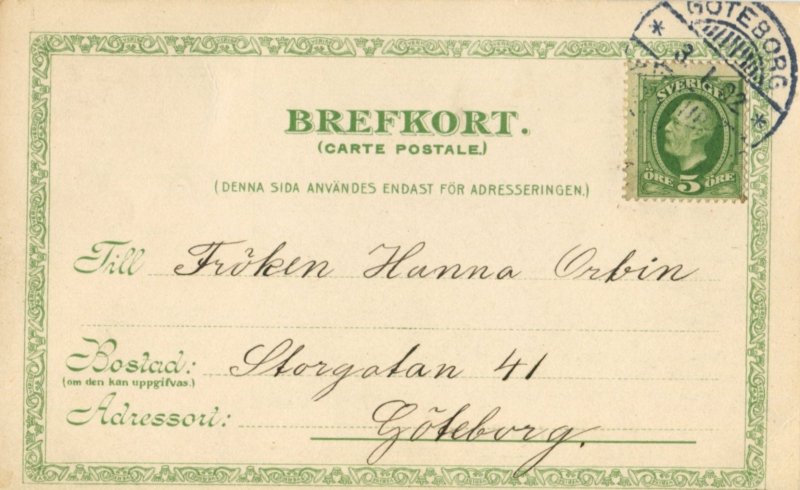 GÖTEBORG
3. 1. 02
SVERIGE
5
ÖRE ÖRE
BREFKORT.
(CARTE POSTALE.)
(DENNA SIDA ANVÄNDES ENDAST FÖR ADRESSERINGEN.)
Till Fröken Hanna Orbin
Bostad: Storgatan 41
(om den kan uppgifvas.)
Adressort: Göteborg.